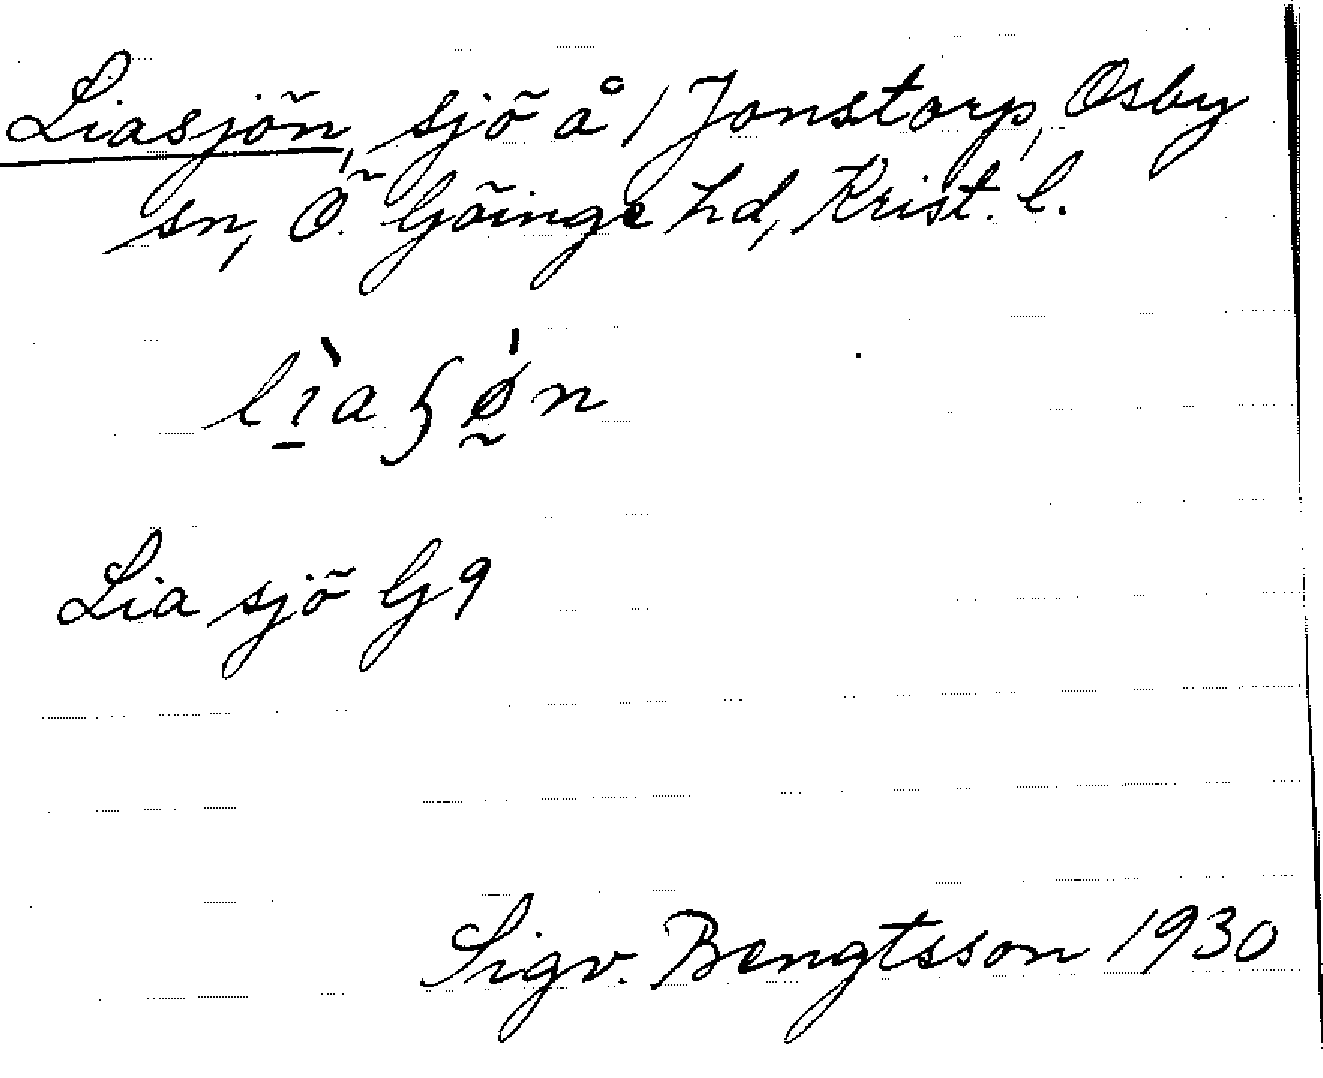 Liasjön, sjö å 1 Jonstorp, Osby
sn, Ö. Göinge hd, Krist. l.
lìaʂǿn
Lia sjö G9
Sigv. Bengtsson 1930